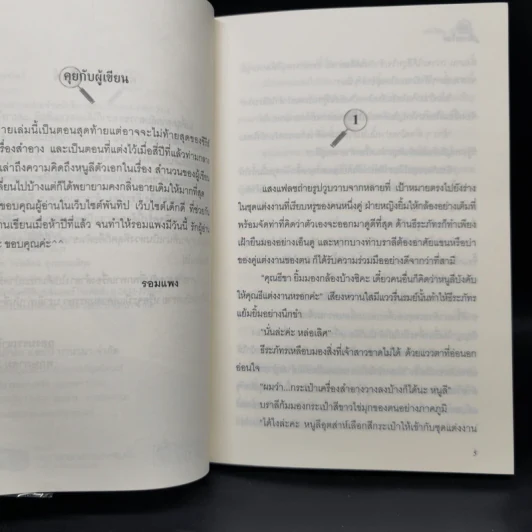 คุยกับผู้เขียน
ายเล่มนี้เป็นตอนสุดท้ายแต่อาจจะไม่ท้ายสุดของซีรีส์
รื่องสำอาง และเป็นตอนที่แต่งไว้เมื่อสี่ปีที่แล้วท่ามกลาง
เล่าถึงความคิดถึงหนูลีตัวเอกในเรื่อง สำนวนของผู้เขียน
ลี่ยนไปบ้างแต่ก็ได้พยายามคงกลิ่นอายเดิมให้มากที่สุด
ขอบคุณผู้อ่านในเว็บไซต์พันทิป เว็บไซต์เด็กดี ที่ช่วยกัน
านเขียนเมื่อห้าปีที่แล้ว จนทำให้รอมแพงมีวันนี้ รักผู้อ่าน
ะ ขอบคุณค่ะ^^
รอมแพง
1
แสงแฟลชถ่ายรูปวูบวาบจากหลายที่ เป้าหมายตรงไปยังร่าง
ในชุดแต่งงานที่เรียบหรูของคนหนึ่งคู่ ฝ่ายหญิงยิ้มให้กล้องอย่างเต็มที่
พร้อมจัดท่าที่คิดว่าตัวเองจะออกมาดูดีที่สุด ด้านธีระภัทรก็ทำเพียง
เฝ้ายิ้มมองอย่างเอ็นดู และหากบางท่าบราลีต้องอาศัยแขนหรือบ่า
ของคู่แต่งงานของตน ก็ได้รับความร่วมมืออย่างดีจากว่าที่สามี
"คุณธีขา ยิ้มมองกล้องบ้างซิคะ เดี๋ยวคนอื่นก็คิดว่าหนูลีบังคับ
ให้คุณธีแต่งงานหรอกค่ะ" เสียงหวานใสมีแววรื่นรมย์นั้นทำให้ธีระภัทร
แย้มยิ้มอย่างนึกขำ
"นั่นล่ะค่ะ หล่อเลิศ"
ธีระภัทรเหลือบมองสิ่งที่เจ้าสาวขาดไม่ได้ ด้วยแววตาที่ออนอก
อ่อนใจ
"ผมว่า...กระเป๋าเครื่องสำอางวางลงบ้างก็ได้นะ หนูลี"
บราลีก้มมองกระเป๋าสีขาวไข่มุกของตนอย่างภาคภูมิ
"ได้ไงล่ะคะ หนูลีอุตส่าห์เลือกสีกระเป๋าให้เข้ากับชุดแต่งงาน
5